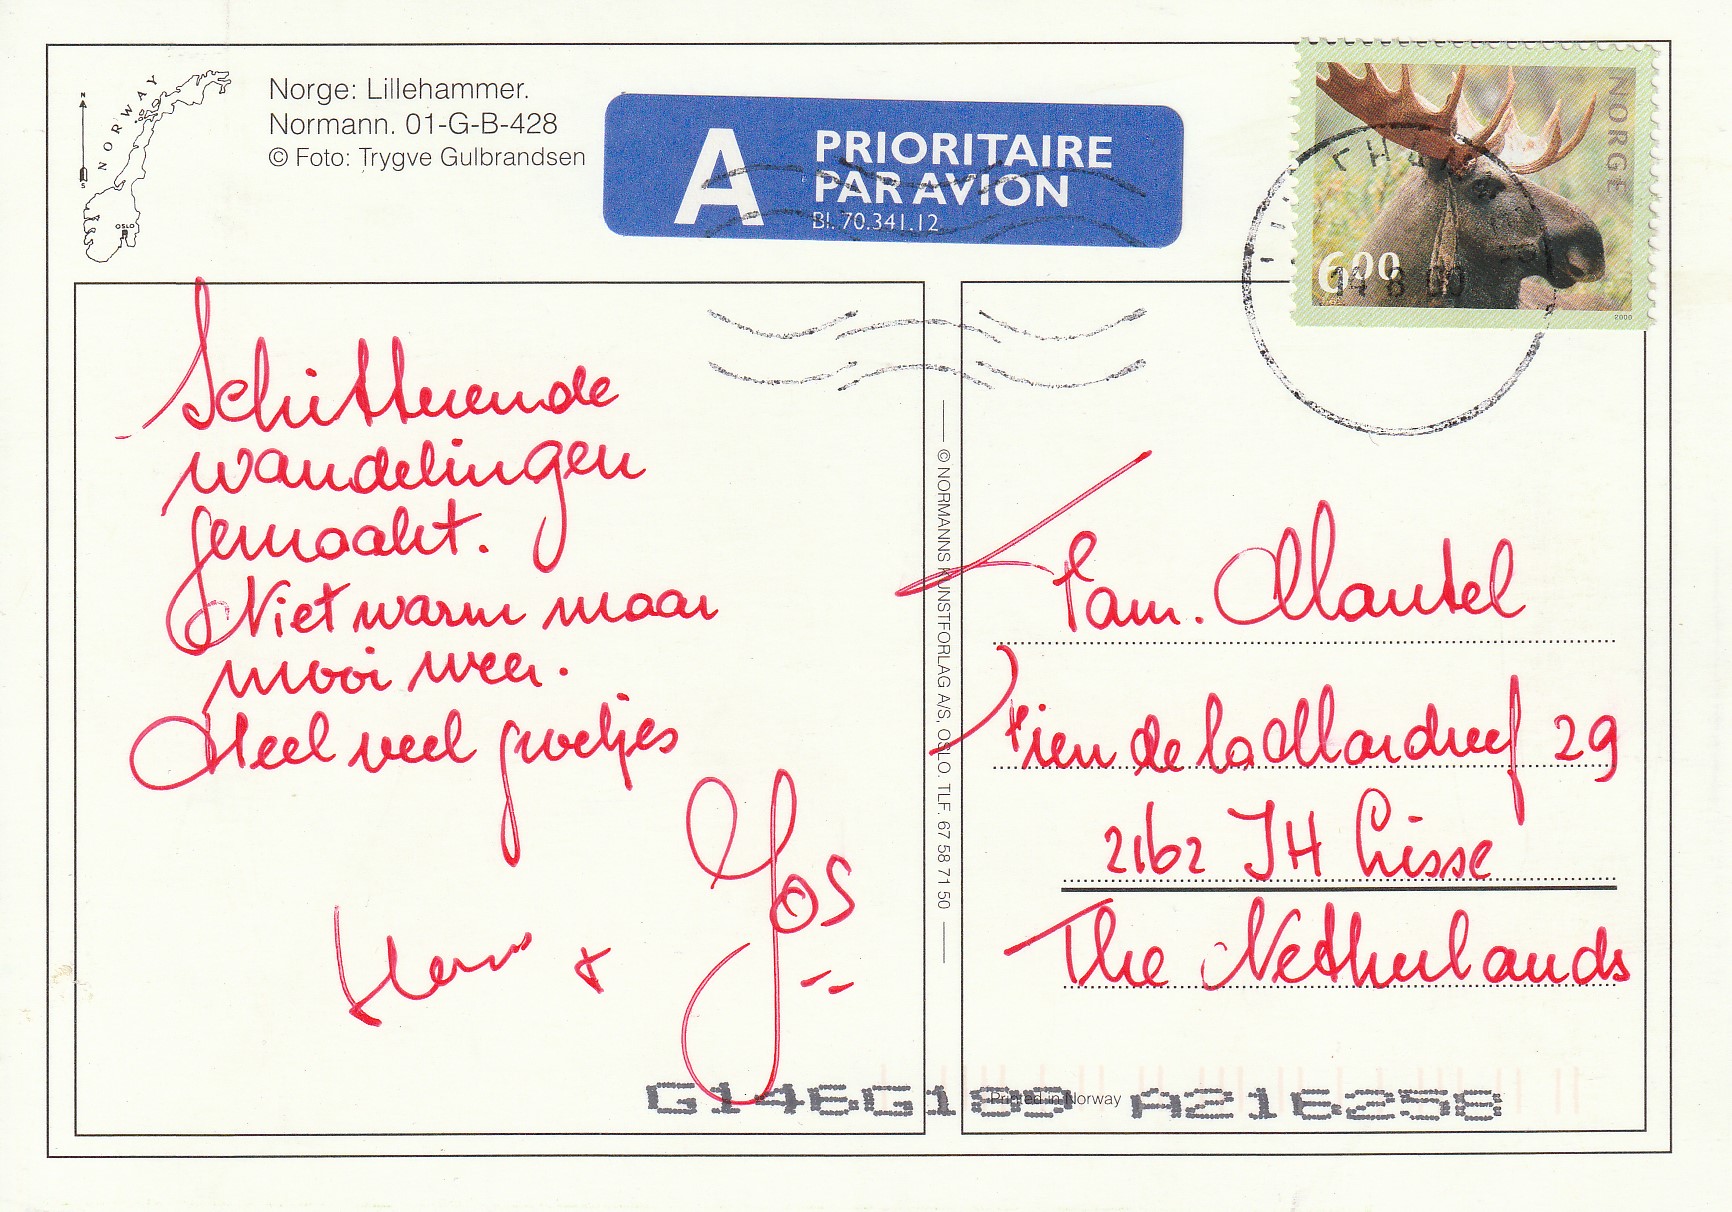 N
NORWAY
S
OSLO
Norge: Lillehammer.
Normann. 01-G-B-428
© Foto: Trygve Gulbrandsen
A PRIORITAIRE
PAR AVION
Bl. 70.341.12
NORGE
600
2000
14 8 00
Schitterende
wandelingen
gemaakt.
Niet warm maar
mooi weer.
Heel veel groetjes
Jos
+
© NORMANNS KUNSTFORLAG A/S, OSLO. TLF. 67 58 71 50
Fam. Mantel
Trien de la Mardreef 29
2162 JH Lisse
The Netherlands
Printed in Norway
G146G189 A216258